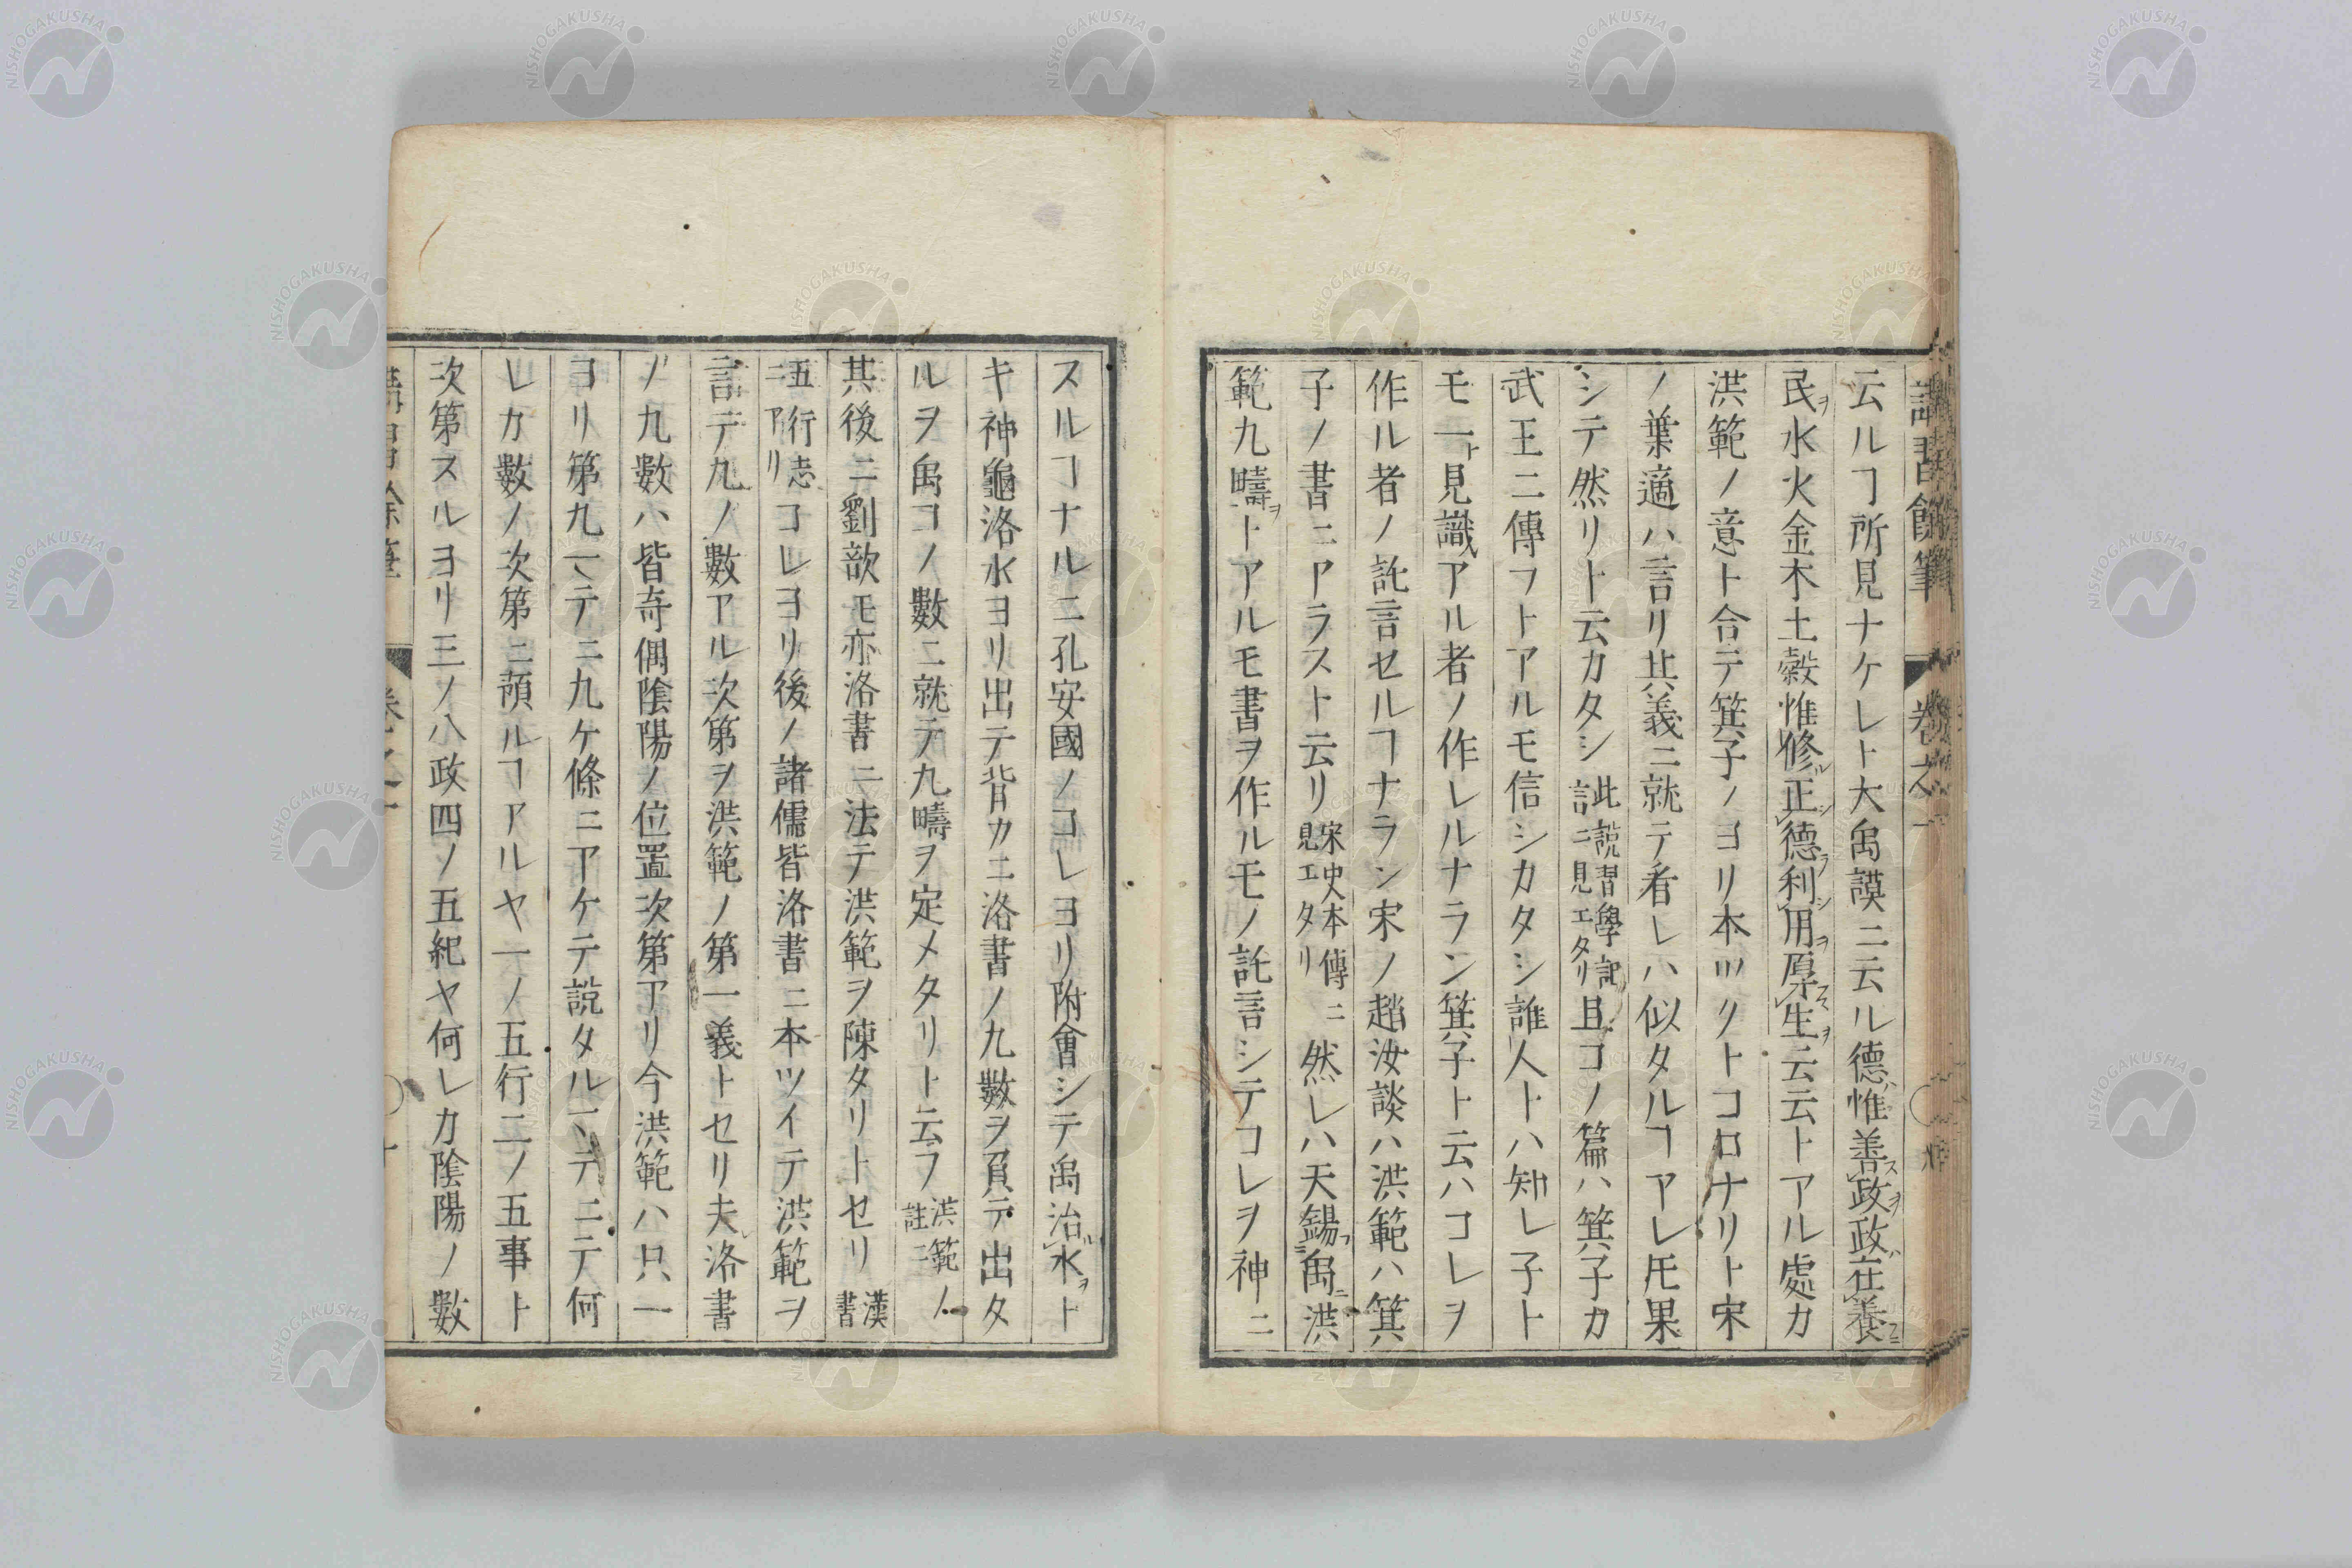 云ルヿ所見ナケレト大禹謨ニ云ル德惟善政政在養
民水火金木土穀惟修正德利用厚生云云トアル處カ
洪範ノ意ト合テ箕子ノヨリ本ツクトコロナリト宋
ノ葉適ハ言リ其義ニ就テ看レハ似タルヿアレ𪜈果
シテ然リト云カタシ此說習學記言ニ見エタリ且コノ篇ハ箕子カ
武王ニ傳フトアルモ信シカタシ誰人トハ知レ子ト
モ一見識アル者ノ作レルナラン箕子ト云ハコレヲ
作ル者ノ託言セルヿナラン宋ノ趙汝談ハ洪範ハ箕
子ノ書ニアラスト云リ宋史本傳ニ見エタリ然レハ天錫禹洪
範九疇トアルモ書ヲ作ルモノ託言シテコレヲ神ニ
スルヿナルニ孔安國ノコレヨリ附會シテ禹治水ト
キ神龜洛水ヨリ出テ背カニ洛書ノ九數ヲ負テ出タ
ルヲ禹コノ數ニ就テ九疇ヲ定メタリト云フ洪範ノ註ニ
其後ニ劉歆モ亦洛書ニ法テ洪範ヲ陳タリトセリ漢書
五行志ニアリコレヨリ後ノ諸儒皆洛書ニ本ツイテ洪範ヲ
言テ九ノ數アル次第ヲ洪範ノ第一義トセリ夫洛書
ノ九數ハ皆奇偶陰陽ノ位置次第アリ今洪範ハ只一
ヨリ第九マテニ九ケ條ニアケテ說タルマテニテ何
レカ數ノ次第ニ預ルヿアルヤ一ノ五行二ノ五事ト
次第スルヨリ三ノ八政四ノ五紀ヤ何レカ陰陽ノ數